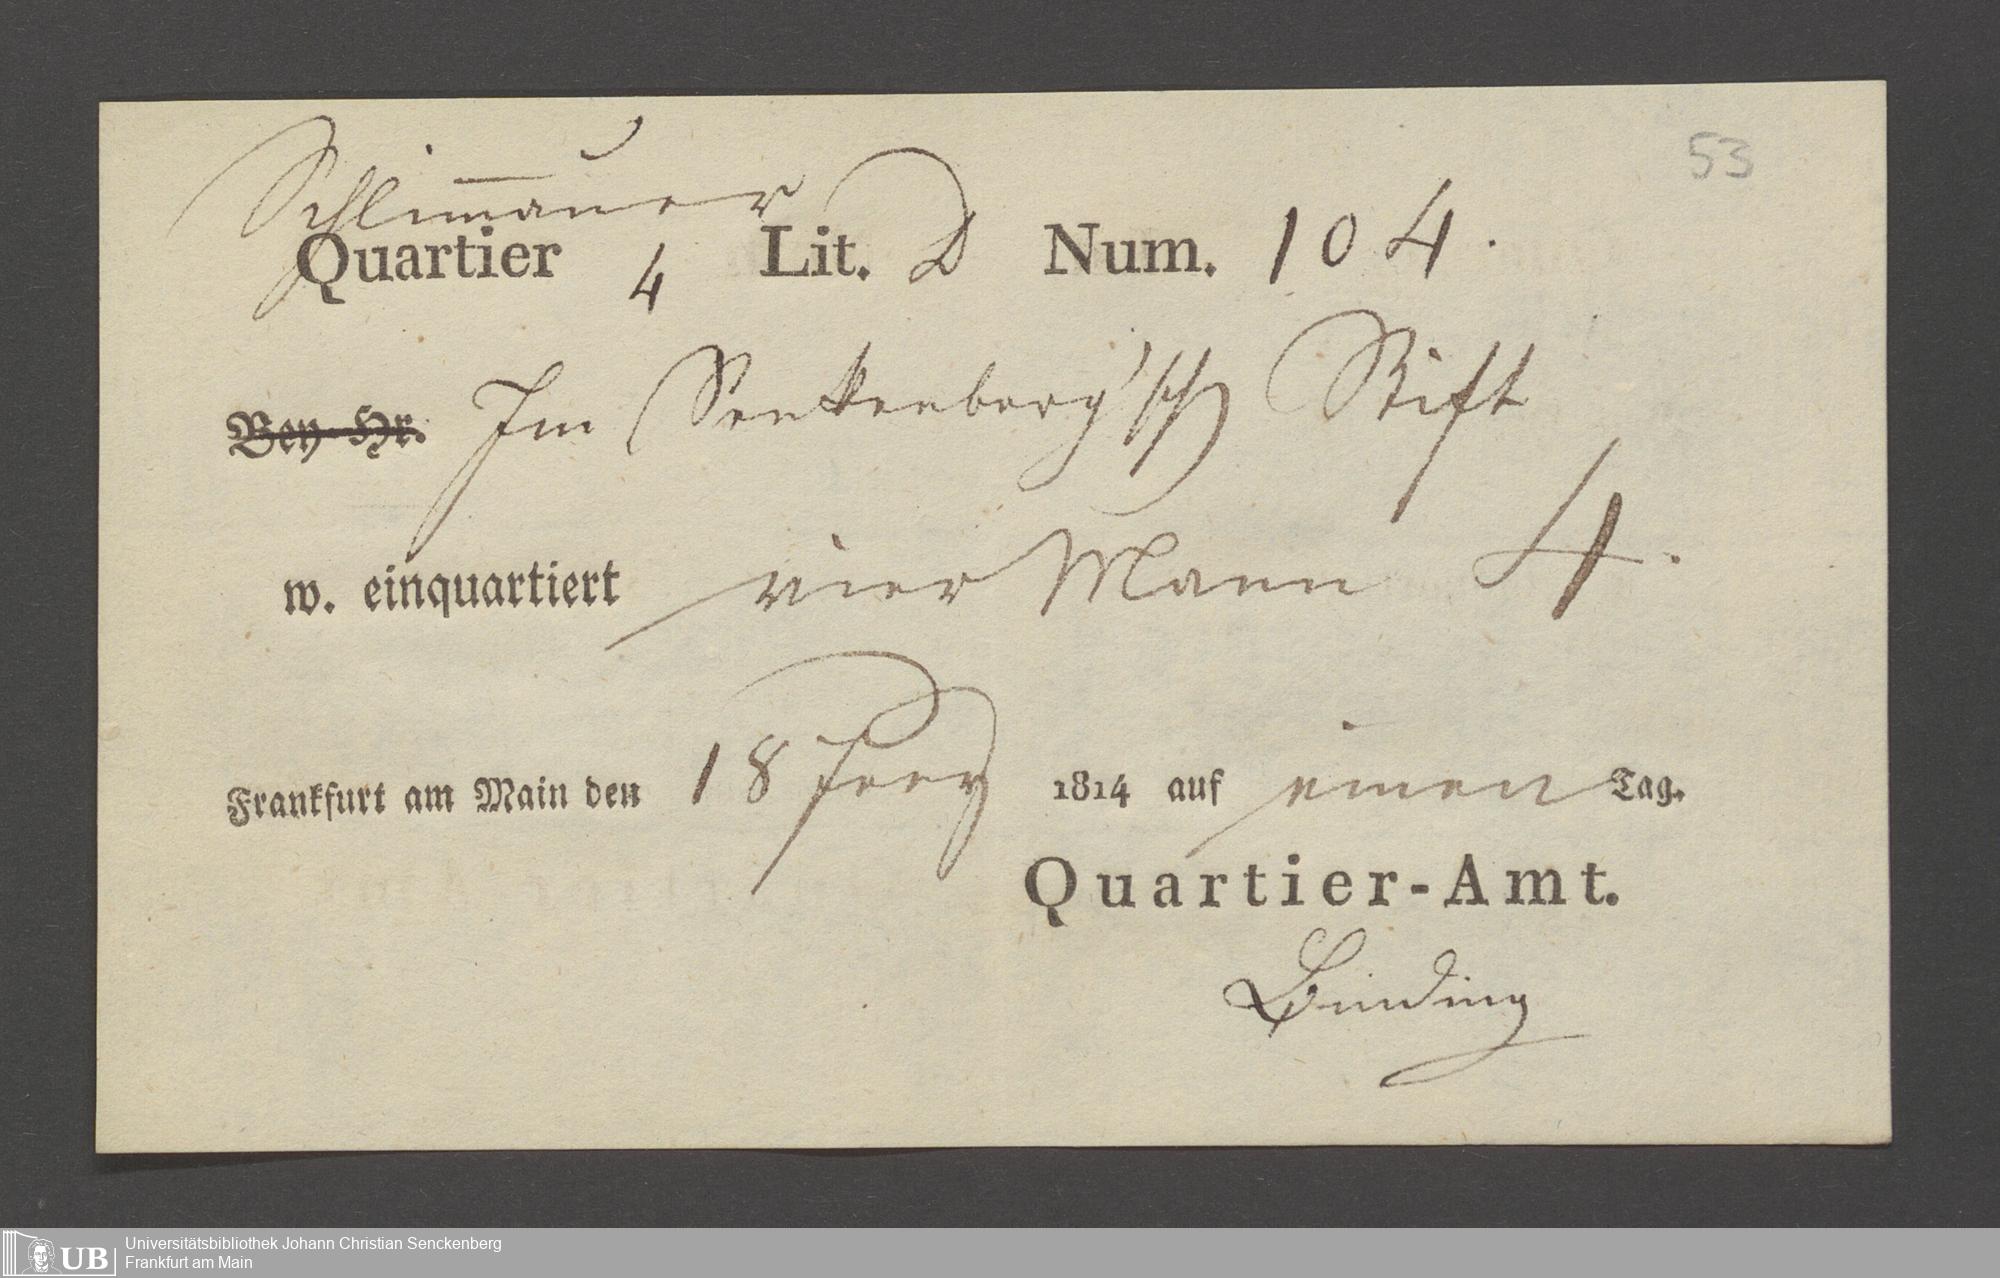 53
Schlim̅auer
Quartier 4 Lit. D Num. 104.
Bey Hr. Im Senkenberg'sch Stift
w. einquartiert vier Mann 4.
Frankfurt am Main den 18 1814 auf einen Tag.
Quartier-Amt.
Binding
UB Universitätsbibliothek Johann Christian Senckenberg
Frankfurt am Main